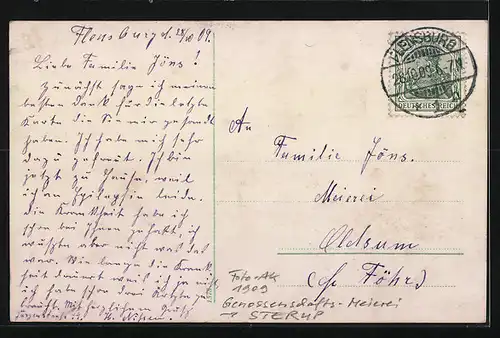 Flensburg d. 28/10 09.
Liebe Familie Jöns!
Zunächst sage ich meinen
besten Dank für die letzte
Karte die Sie mir gesandt
haben. Ich habe mich sehr
dazu gefreut. Ich bin
jetzt zu Hause, weil
ich an Epilepsie leide.
Die Krankheit habe ich
schon bei Ihnen gehabt, ich
wußte aber nicht was das
war. Wie lange die Krank
heit dauert weiß ich ja nicht
ich habe schon drei Ärzte ge
braucht. Mit herzlichem Gruß
FLENSBURG
28.10.09. 6-7 N
DEUTSCHES REICH
An
Familie Jöns.
Meierei
Oldsum
(auf Föhr)
Foto-AK
1909
Genossenschafts-Meierei
→ STERUP